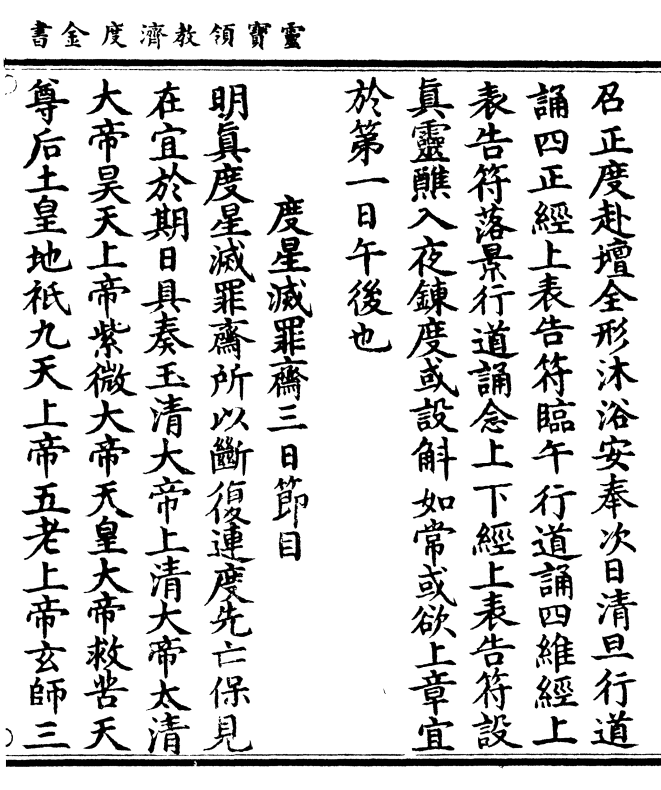 靈寶領教濟度金書
召正度赴壇全形沐浴安奉次日清旦行道
誦四正經上表告符臨午行道誦四維經上
表告符落景行道誦念上下經上表告符設
眞靈醮入夜鍊度或設斛如常或欲上章宜
於第一日午後也
度星滅罪齋三日節目
明眞度星滅罪齋所以斷復連度先亡保見
在宜於期日具奏玉清大帝上清大帝太清
大帝昊天上帝紫微大帝天皇大帝救苦天
尊后土皇地祇九天上帝五老上帝玄師三